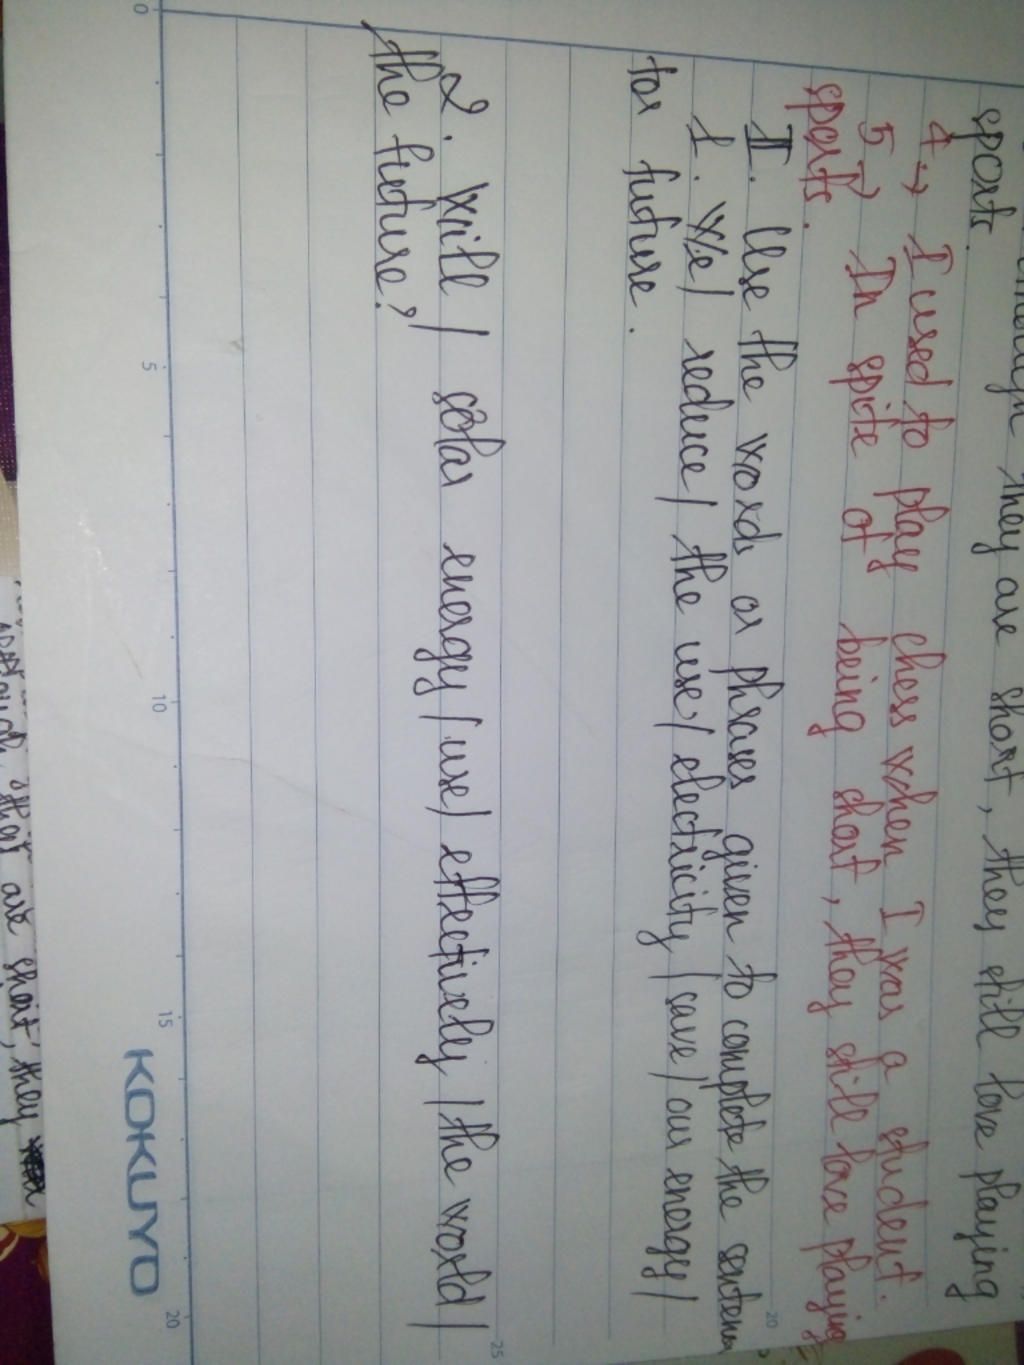 they are short, they still love playing
sports.
4 → I used to play chess when I was a student.
5 → In spite of being short, they still love playing
sports.
II. Use the words or phrases given to complete the senten
1. We / reduce / the use / electricity / save / our energy /
for future.
2. Will / solar energy / use / effectively / the world /
the future?
0
5
10
15
20
20
25
KOKUYO
are short, they